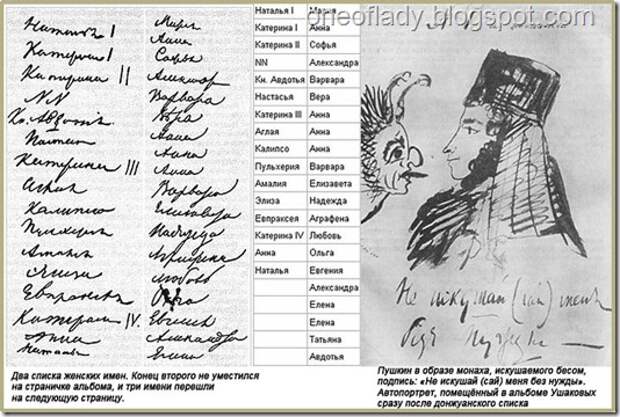 oneoflady.blogspot.com
Наталья I Мария
Катерина I Анна
Катерина II Софья
NN Александра
Кн. Авдотья Варвара
Настасья Вера
Катерина III Анна
Аглая Анна
Калипсо Анна
Пульхерия Варвара
Амалия Елизавета
Элиза Надежда
Евпраксея Аграфена
Катерина IV Любовь
Анна Ольга
Наталья Евгения
Александра
Елена
Наталья I Мария
Катерина I Анна
Катерина II Софья
NN Александра
Кн. Авдотья Варвара
Настасья Вера
Катерина III Анна
Аглая Анна
Калипсо Анна
Пульхерия Варвара
Амалия Елизавета
Элиза Надежда
Евпраксея Аграфена
Катерина IV Любовь
Анна Ольга
Наталья Евгения
Александра
Елена
Елена
Татьяна
Авдотья
Не искушай (сай) меня
без нужды
Два списка женских имен. Конец второго не уместился
на страничке альбома, и три имени перешли
на следующую страницу.
Пушкин в образе монаха, искушаемого бесом,
подпись: «Не искушай (сай) меня без нужды».
Автопортрет, помещённый в альбоме Ушаковых
сразу после донжуанского списка